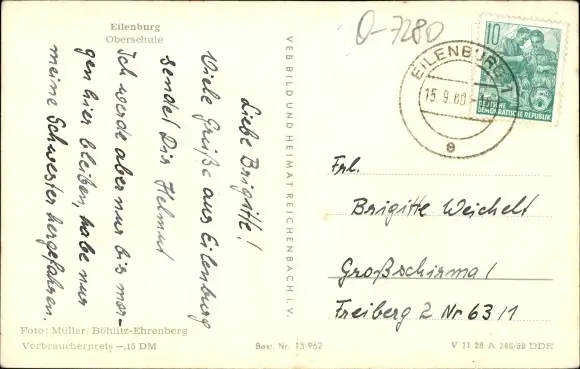 Eilenburg
Oberschule
Liebe Brigitte!
Viele Grüße aus Eilenburg
sendet Dir Helmut
Ich werde aber nur bis mor-
gen hier bleiben, habe nur
meine Schwester hergefahren.
Foto: Müller, Böhlitz-Ehrenberg
Verbraucherpreis -,15 DM
VEB BILD UND HEIMAT REICHENBACH I. V.
Best. Nr. 13 962
O-7280
EILENBURG 1
15.9.60
e
10
DEUTSCHE
DEMOKRATISCHE REPUBLIK
Frl.
Brigitte Weichelt
Großschirma /
Freiberg 2 Nr 63/1
V 11 28 A 246/59 DDR